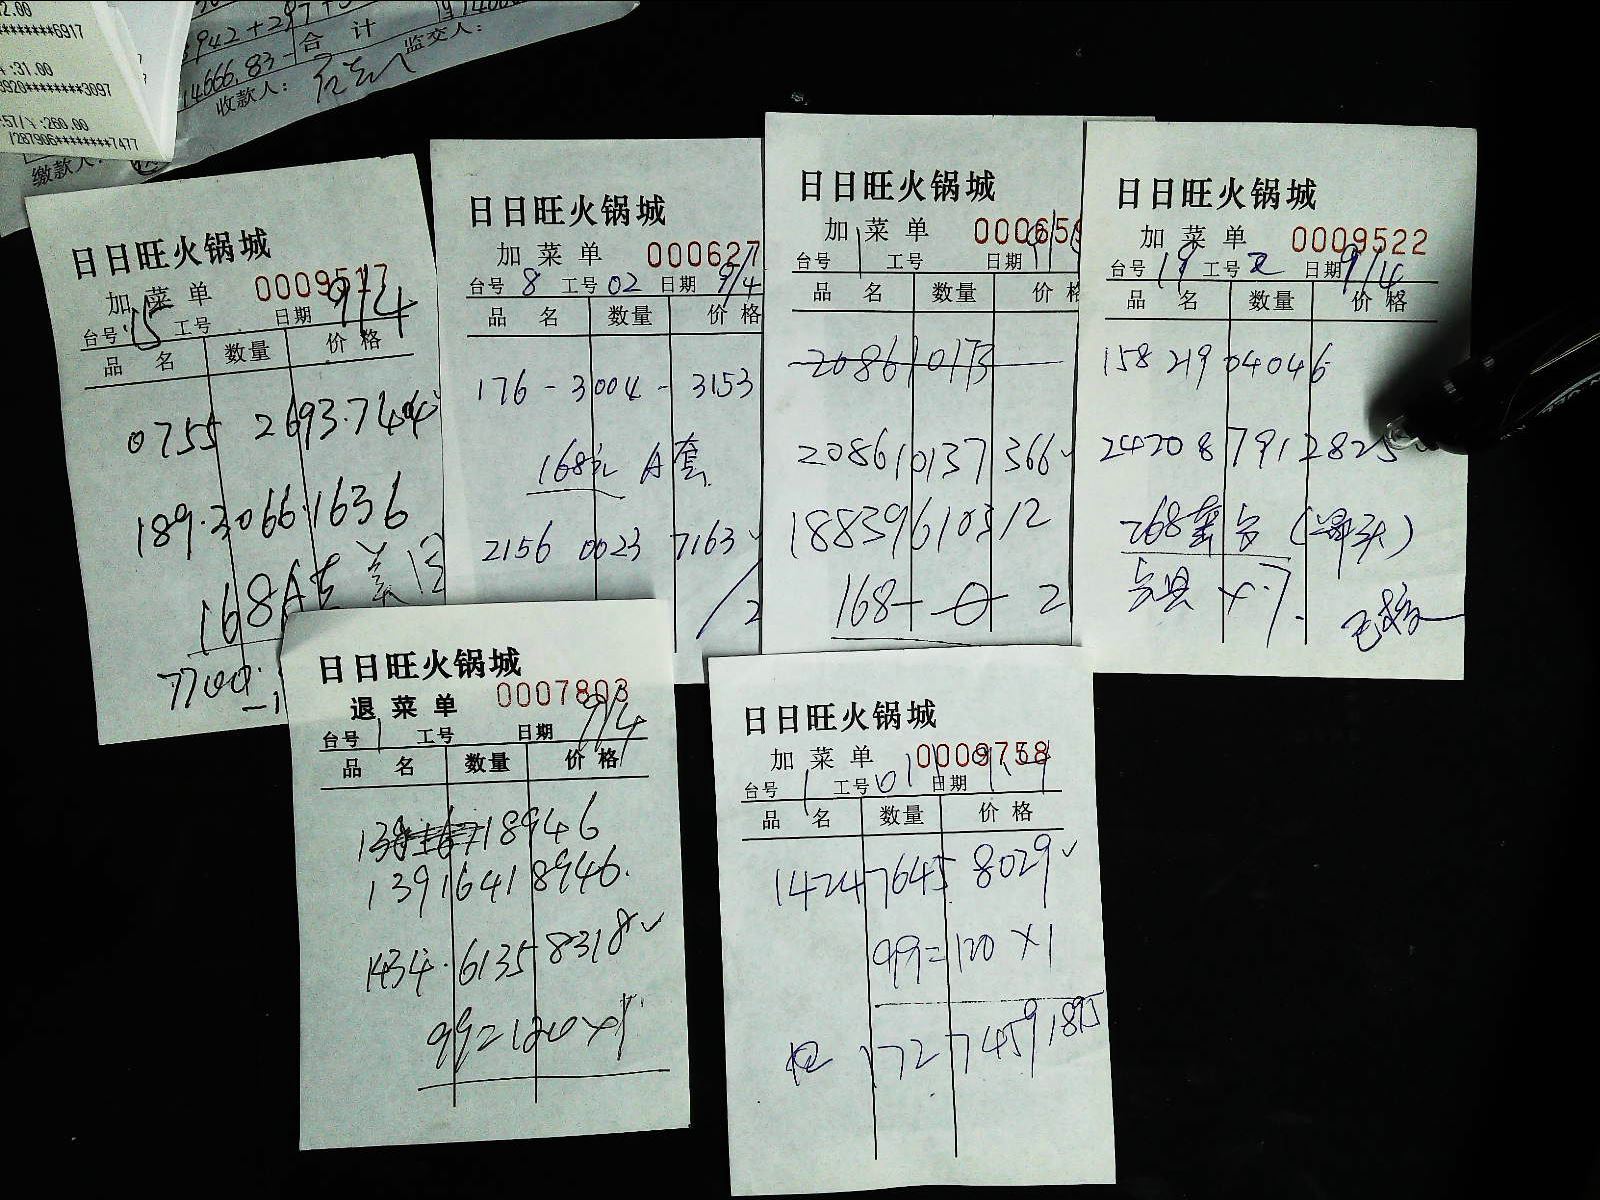 2.00
********6917
:31.00
3920********3097
:57/¥:260.00
/287906********7477
942+297+
合 计
监交人:
14666.83
收款人:
缴款人:
日日旺火锅城
加 菜 单 0009517
台号 15 工号 日期 9/4
品 名 数量 价 格
0755
189.3066.1636
168A
7700.
日日旺火锅城
加 菜 单 000627
台号 8 工号 02 日期 9/4
品 名 数量 价 格
176-3004-3153
168元 A套
2156 0023 7163
日日旺火锅城
加 菜 单 000659
台号 1 工号 日期
品 名 数量 价 格
208610173
208610137366
18839610312
168
日日旺火锅城
加 菜 单 0009522
台号 19 工号 日期 9/4
品 名 数量 价 格
158 219 04046
24208 7912825
268套台
日日旺火锅城
退 菜 单 0007803
台号 1 工号 日期 9/4
品 名 数量 价 格
18946
13916418946.
1434.6135 8318
99=120×1
日日旺火锅城
加 菜 单 0009758
台号 1 工号 01 日期 9.4
品 名 数量 价 格
14247645 8029
99=120×1
172 7459 1895